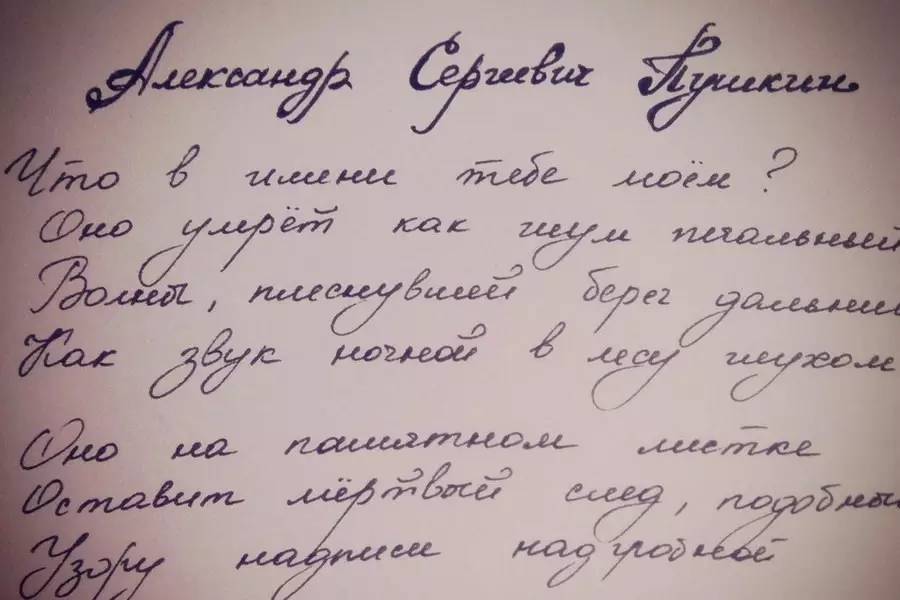 Александр Сергеевич Пушкин
Что в имени тебе моём?
Оно умрёт как шум печальный
Волны, плеснувшей берег дальний
Как звук ночной в лесу глухом
Оно на памятном листке
Оставит мёртвый след, подобный
Узору надписи надгробной